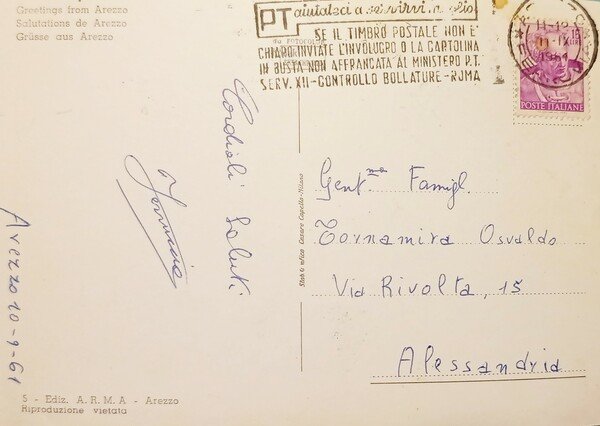 Greetings from Arezzo
Salutations de Arezzo
Grüsse aus Arezzo
PT aiutateci a servirvi meglio
SE IL TIMBRO POSTALE NON E'
CHIARO INVIATE L'INVOLUCRO O LA CARTOLINA
IN BUSTA NON AFFRANCATA AL MINISTERO P.T.
SERV. XII - CONTROLLO BOLLATURE - ROMA
POSTE ITALIANE
Cordiali Saluti
Arezzo 10-9-61
Gent.ma Famigl.
Tornamira Osvaldo
Via Rivolta, 15
Alessandria
5 - Ediz. A.R.M.A - Arezzo
Riproduzione vietata